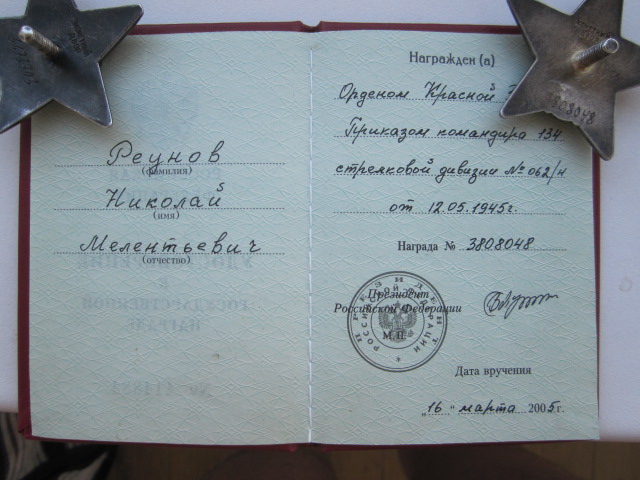 Реунов
(фамилия)
Николай
(имя)
Мелентьевич
(отчество)
Награжден (а)
Орденом Красной
Приказом командира 134
стрелковой дивизии № 062/н
от 12.05.1945г.
Награда № 3808048
Президент
Российской Федерации
М.П.
Дата вручения
„16" марта 2005г.
808048